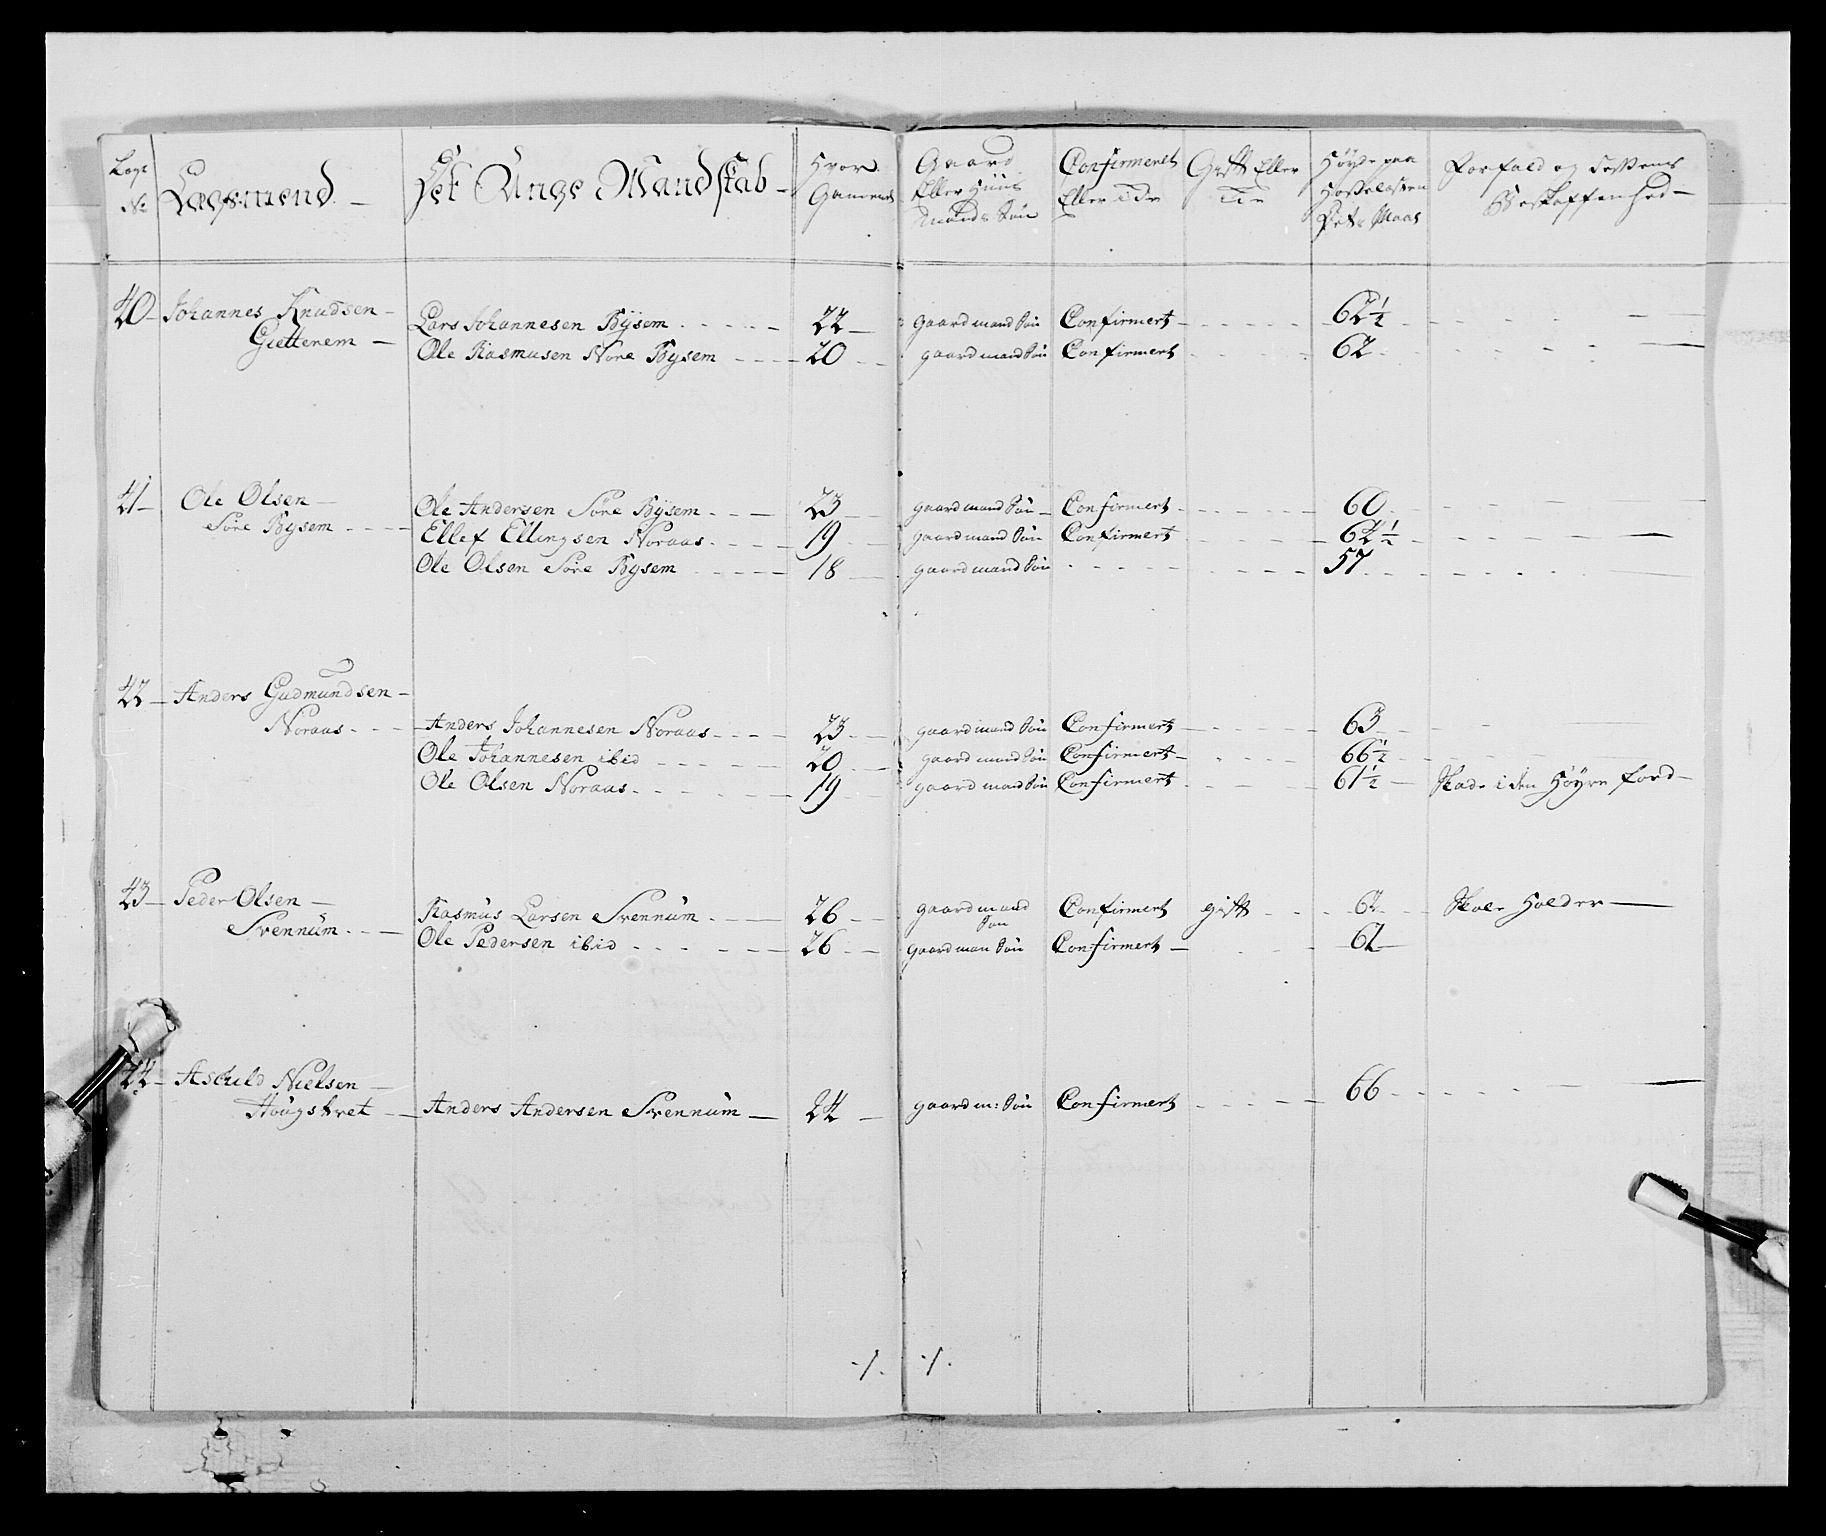 Lægs No | Lægsmend | Det Unge Mandskab | Hvor Gammel | Gaard Eller Huus mands Søn | Confirmeret Eller Ei | Gift Eller Ei | Høyde paa Hosselæsten Let: Maas | Forfald og dessens Beskaffenhed
40 Johannes Knudsen
Gietterem
Lars Johannesen Bÿsem 22 gaardmand Søn Confirmert 62 1/2
Ole Rasmusen Nore Bysem 20 gaardmand Søn Confirmert 62
41 Ole Olsen
Søre Bysem
Ole Andersen Søre Bysem 23 gaardmand Søn Confirmert 60
Ellef Ellingsen Noraas 19 gaardmand Søn Confirmert 62 1/2
Ole Olsen Søre Bysem 18 gaardmand Søn 57
42 Anders Gudmundsen
Noraas
Anders Johannesen Noraas 23 gaardmand Søn Confirmert 63
Ole Johannesen ibid 20 gaardmand Søn Confirmert 66 1/2
Ole Olsen Noraas 19 gaardmand Søn Confirmert 61 1/2 Skade i den Høyre food
43 Peder Olsen
Svennum
Rasmus Larsen Svennum 26 gaardmand Søn Confirmert gift 62 Skole Holder
Ole Pedersen ibid 26 gaardman Søn Confirmert 62
44 Aschild Nielsen
Hougstvet
Anders Andersen Svennum 24 gaardm: Søn Confirmert 66
./. ./.